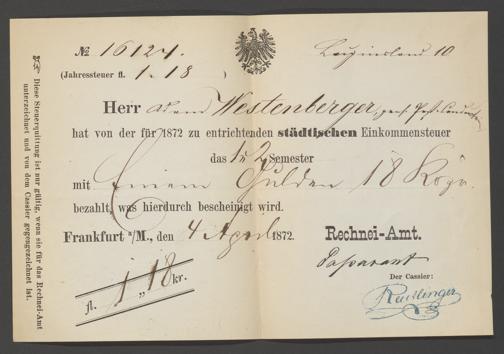 № 16124. Langinsland 10
(Jahressteuer fl. 1.18 )
Herr Adam Westenberger, pens. Post-Conducteur
hat von der für 1872 zu entrichtenden städtischen Einkommensteuer
das 1 u 2 Semester
mit Einem Gulden 18 Kr.
bezahlt, was hierdurch bescheinigt wird.
Frankfurt a/M., den 4 April 1872.
Rechnei-Amt.
Passavant
Der Cassier:
Reutlinger
fl. 1 „ 18 kr.
Diese Steuerquittung ist nur gültig, wenn sie für das Rechnei-Amt
unterzeichnet und von dem Cassier gegengezeichnet ist.